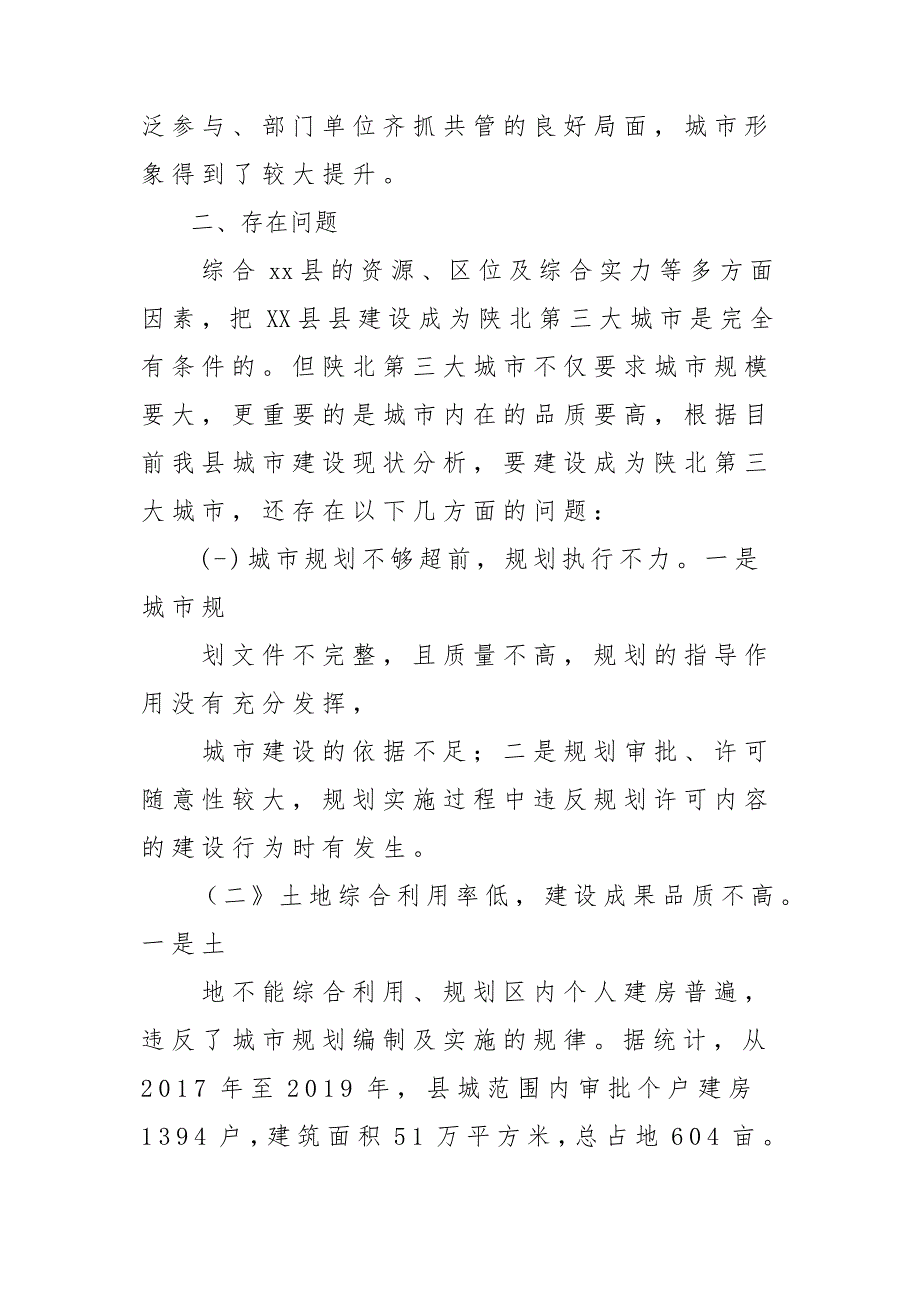 泛参与、部门单位齐抓共管的良好局面，城市形
象得到了较大提升。
二、存在问题
综合xx县的资源、区位及综合实力等多方面
因素，把XX县县建设成为陕北第三大城市是完全
有条件的。但陕北第三大城市不仅要求城市规模
要大，更重要的是城市内在的品质要高，根据目
前我县城市建设现状分析，要建设成为陕北第三
大城市，还存在以下几方面的问题：
(-)城市规划不够超前，规划执行不力。一是
城市规
划文件不完整，且质量不高，规划的指导作
用没有充分发挥，
城市建设的依据不足；二是规划审批、许可
随意性较大，规划实施过程中违反规划许可内容
的建设行为时有发生。
（二》土地综合利用率低，建设成果品质不高。
一是土
地不能综合利用、规划区内个人建房普遍，
违反了城市规划编制及实施的规律。据统计，从
2017年至2019年，县城范围内审批个户建房
1394户,建筑面积51万平方米,总占地604亩。